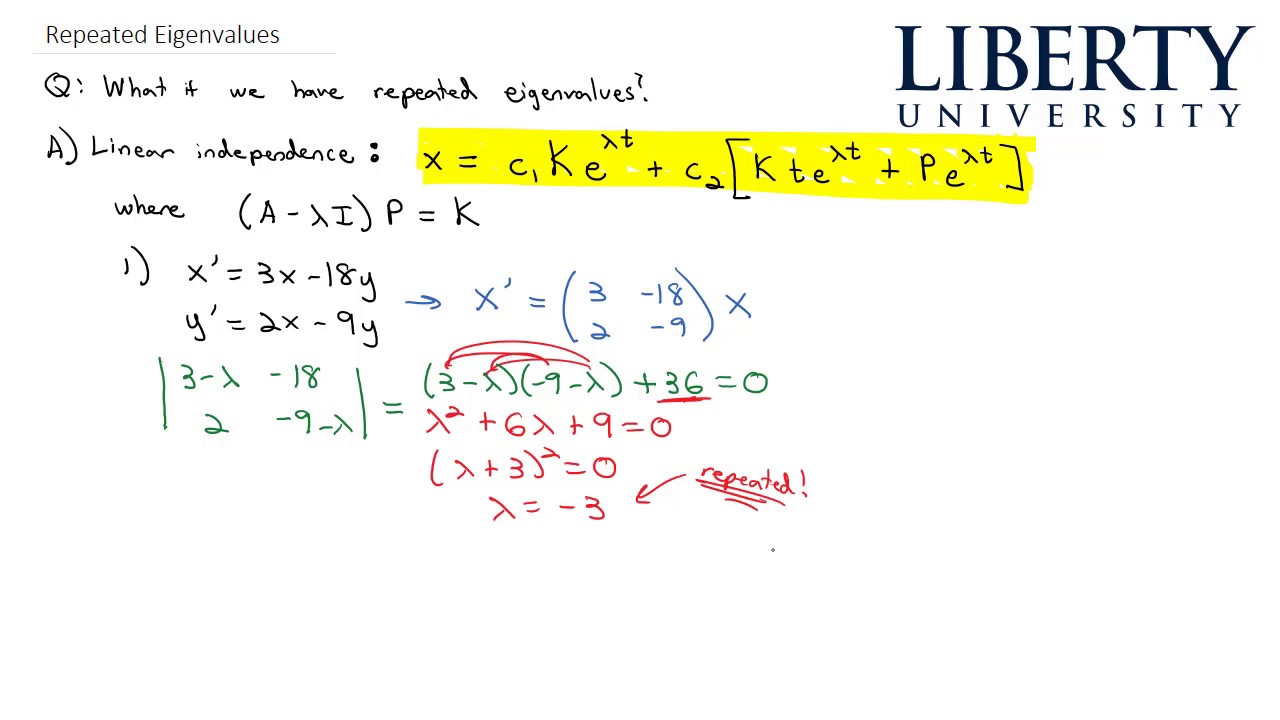 Repeated Eigenvalues
LIBERTY
UNIVERSITY
Q: What if we have repeated eigenvalues?
A) Linear independence: x = c₁Ke^λt + c₂[Kte^λt + Pe^λt]
where (A - λI) P = K
1) x' = 3x - 18y
y' = 2x - 9y
→ X' = (3 -18
2 -9) X
|3-λ -18
2 -9-λ| = (3-λ)(-9-λ) + 36 = 0
λ² + 6λ + 9 = 0
(λ + 3)² = 0
λ = -3
repeated!